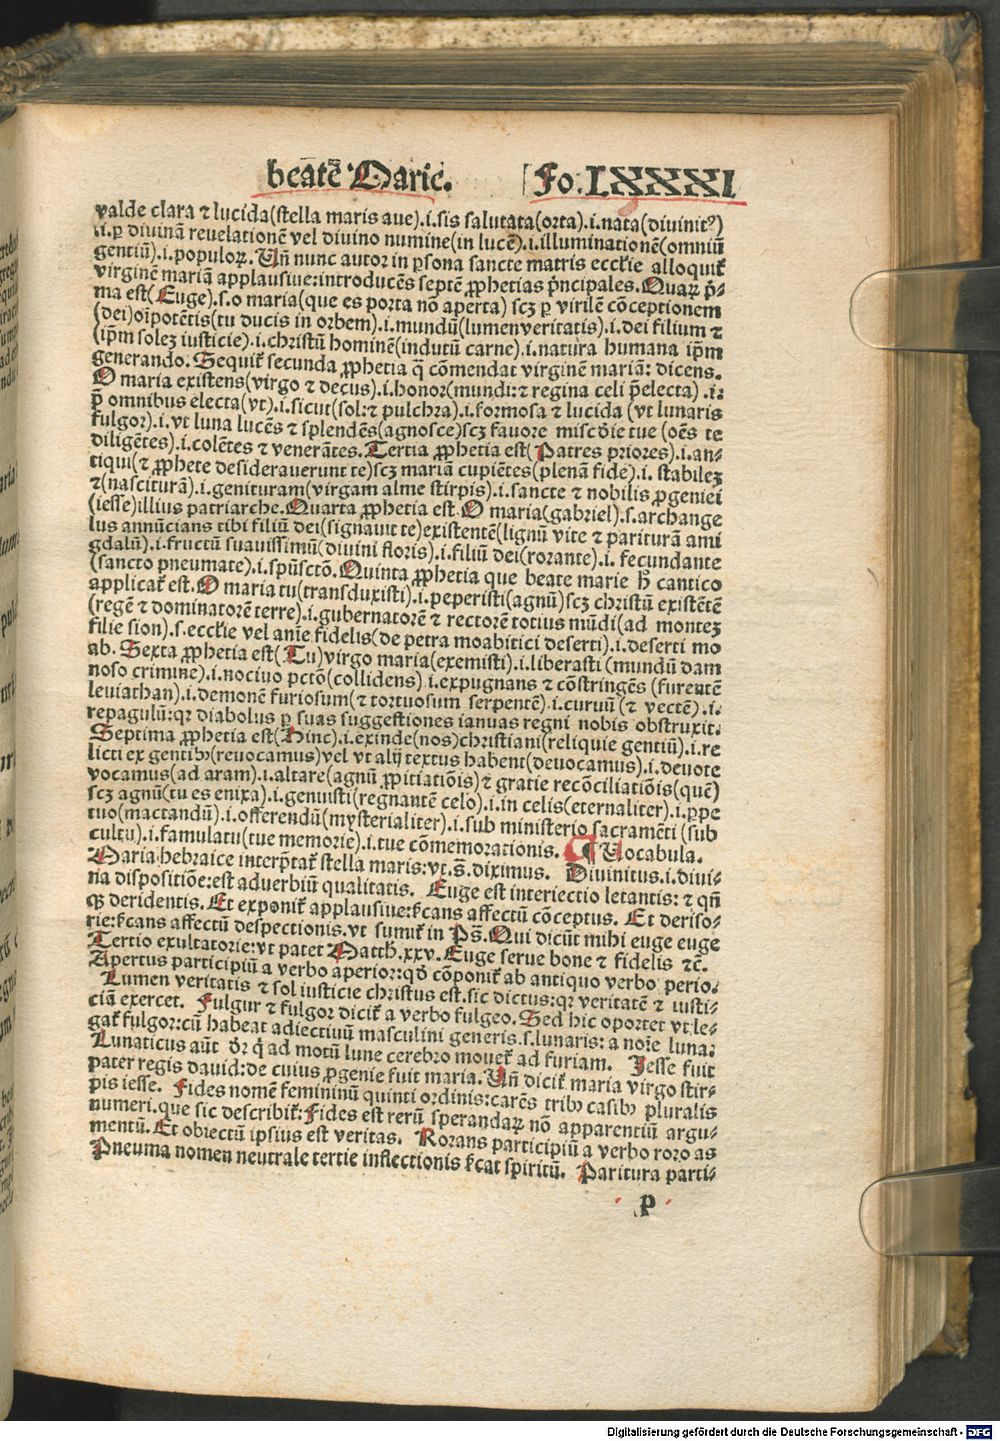 beatē Marie.
Fo. LXXXI
valde clara ⁊ lucida(stella maris aue).i.sis salutata(orta).i.nata(diuinitꝰ)
.i.ꝑ diuinā reuelationē vel diuino numine(in lucē).i.illuminationē(omniū
gentiū).i.populoꝝ. Uñ nunc autor in ꝑsona sancte matris eccl'ie alloquit᷑
virginē mariā applausiue:introducēs septē ꝓphetias p̄ncipales. Quaꝝ p̄-
ma est(Euge).s.o maria(que es porta nō aperta) scꝫ ꝑ virilē cōceptionem
(dei)oīpotētis(tu ducis in orbem).i.mundū(lumen veritatis).i.dei filium ⁊
(ip̄m solez iusticie).i.christū hominē(indutū carne).i.natura humana ip̄m
generando. Sequit᷑ secunda ꝓphetia q̄ cōmendat virginē mariā: dicens.
O maria existens(virgo ⁊ decus).i.honor(mundi:⁊ regina celi p̄electa) .i.
p̄ omnibus electa(vt).i.sicut(sol:⁊ pulchra).i.formosa ⁊ lucida (vt lunaris
fulgor).i.vt luna lucēs ⁊ splendēs(agnosce)scꝫ fauore misc̄die tue (oēs te
diligētes).i.colētes ⁊ venerātes. Tertia ꝓphetia est(Patres priores).i.an-
tiqui(⁊ ꝓphete desiderauerunt te)scꝫ mariā cupiētes(plenā fide).i. stabilez
⁊(nasciturā).i.genituram(virgam alme stirpis).i.sancte ⁊ nobilis ꝓgeniei
(iesse)illius patriarche. Quarta ꝓphetia est. O maria(gabriel).s.archange
lus annūcians tibi filiū dei(signauit te)existentē(lignū vite ⁊ pariturā ami
gdalū).i.fructū suauissimū(diuini floris).i.filiū dei(rorante).i. fecundante
(sancto pneumate).i.spūsctō. Quinta ꝓphetia que beate marie ħ cantico
applicat᷑ est. O maria tu(transduxisti).i.peperisti(agnū)scꝫ christū existētē
(regē ⁊ dominatorē terre).i.gubernatorē ⁊ rectorē totius mūdi(ad montez
filie sion).s.eccl'ie vel anīe fidelis(de petra moabitici deserti).i.deserti mo
ab. Sexta ꝓphetia est(Tu)virgo maria(exemisti).i.liberasti (mundū dam
noso crimine).i.nociuo pctō(collidens) .i.expugnans ⁊ cōstringēs (furentē
leuiathan).i.demonē furiosum(⁊ tortuosum serpentē) .i.curuū (⁊ vectē) .i.
repagulū:qꝛ diabolus ꝑ suas suggestiones ianuas regni nobis obstruxit.
Septima ꝓphetia est(Hinc).i.exinde(nos)christiani(reliquie gentiū).i.re
licti ex gentibꝫ(reuocamus)vel vt alij textus habent(deuocamus).i.deuote
vocamus(ad aram).i.altare(agnū ꝓpitiatiōis)⁊ gratie recōciliatiōis(quē)
scꝫ agnū(tu es enixa).i.genuisti(regnantē celo).i.in celis(eternaliter).i.ꝑpe
tuo(mactandū).i.offerendū(mysterialiter).i.sub ministerio sacramēti (sub
cultu).i.famulatu(tue memorie).i.tue cōmemorationis. ¶ Uocabula.
Maria hebraice interp̄tat᷑ stella maris:vt.s̄.diximus. Diuinitus.i.diui-
na dispositiōe:est aduerbiū qualitatis. Euge est interiectio letantis: ⁊ qñ
qꝫ deridentis. Et exponit᷑ applausiue:s̄cans affectū cōceptus. Et deriso-
rie:s̄cans affectū despectionis.vt sumit᷑ in Ps̄. Qui dicūt mihi euge euge
Tertio exultatorie:vt patet Matth.xxv. Euge serue bone ⁊ fidelis ⁊c̄.
Apertus participiū a verbo aperior:qđ cōponit᷑ ab antiquo verbo perio.
Lumen veritatis ⁊ sol iusticie christus est.sic dictus:qꝛ veritatē ⁊ iusti-
ciā exercet. Fulgur ⁊ fulgor dicit᷑ a verbo fulgeo. Sed hic oportet vt le-
gat᷑ fulgor:cū habeat adiectiuū masculini generis.s.lunaris: a noīe luna.
Lunaticus aūt dr̄ q̇ ad motū lune cerebro mouet᷑ ad furiam. Jesse fuit
pater regis dauid:de cuius ꝓgenie fuit maria. Uñ dicit᷑ maria virgo stir-
pis iesse. Fides nomē femininū quinti ordinis:carēs tribꝫ casibꝫ pluralis
numeri.que sic describit᷑: Fides est rerū sperandaꝝ nō apparentiū argu-
mentū. Et obiectū ipsius est veritas. Rorans participiū a verbo roro as
Pneuma nomen neutrale tertie inflectionis s̄cat spiritū. Paritura parti-
p
Digitalisierung gefördert durch die Deutsche Forschungsgemeinschaft - DFG